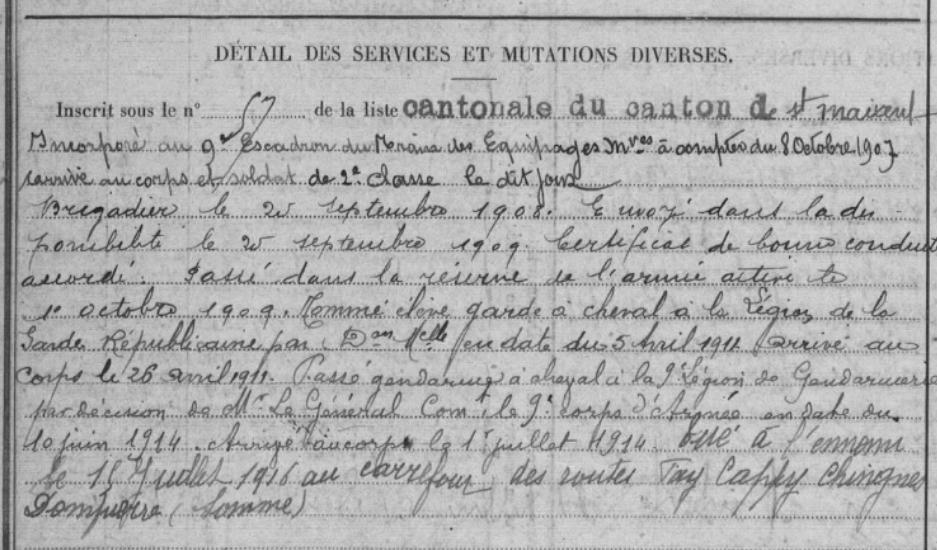 DÉTAIL DES SERVICES ET MUTATIONS DIVERSES.
Inscrit sous le n° 57 de la liste cantonale du canton de St Maixent
Incorporé au 9e Escadron du Train des Equipages Mres à compter du 8 Octobre 1907
arrivé au corps et soldat de 2e classe le dit jour
Brigadier le 20 septembre 1908. Envoyé dans la dis-
ponibilité le 20 septembre 1909. Certificat de bonne conduite
accordé. Passé dans la réserve de l'armée active le
1er octobre 1909. Nommé élève garde à cheval à la Légion de la
Garde Républicaine par Don Melle en date du 5 Avril 1911 arrivé au
corps le 26 avril 1911. Passé gendarme à cheval à la 9e Légion de Gendarmerie
par décision de Mr Le Général Comt le 9e corps d'Armée en date du
10 juin 1914. Arrivé au corps le 1er juillet 1914. Tué à l'ennemi
le 15 Juillet 1916 au carrefour des routes Cappy Chuignes
Dompierre (Somme)